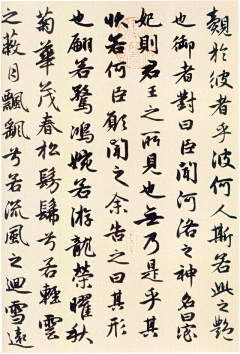 覿於彼者乎彼何人斯若此之艷
也御者對曰臣聞河洛之神名曰宓
妃則君王之所見也無乃是乎其
狀若何臣願聞之余告之曰其形
也翩若驚鴻婉若游龍榮曜秋
菊華茂春松髣髴兮若輕雲
之蔽月飄颻兮若流風之迴雪遠